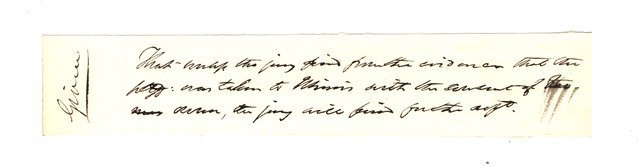 Given
That unless the jury find from the evidence that the
plff: was taken to Illinois with the consent of
owner, the jury will find for the deft.